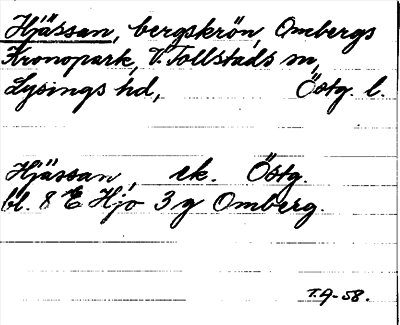 Hjässan, bergskrön, Ombergs
Kronopark, V. Tollstads sn,
Lysings hd, Östg. l.
Hjässan, ek. Östg.
bl. 8 E Hjo 3 g Omberg.
T.A-58.